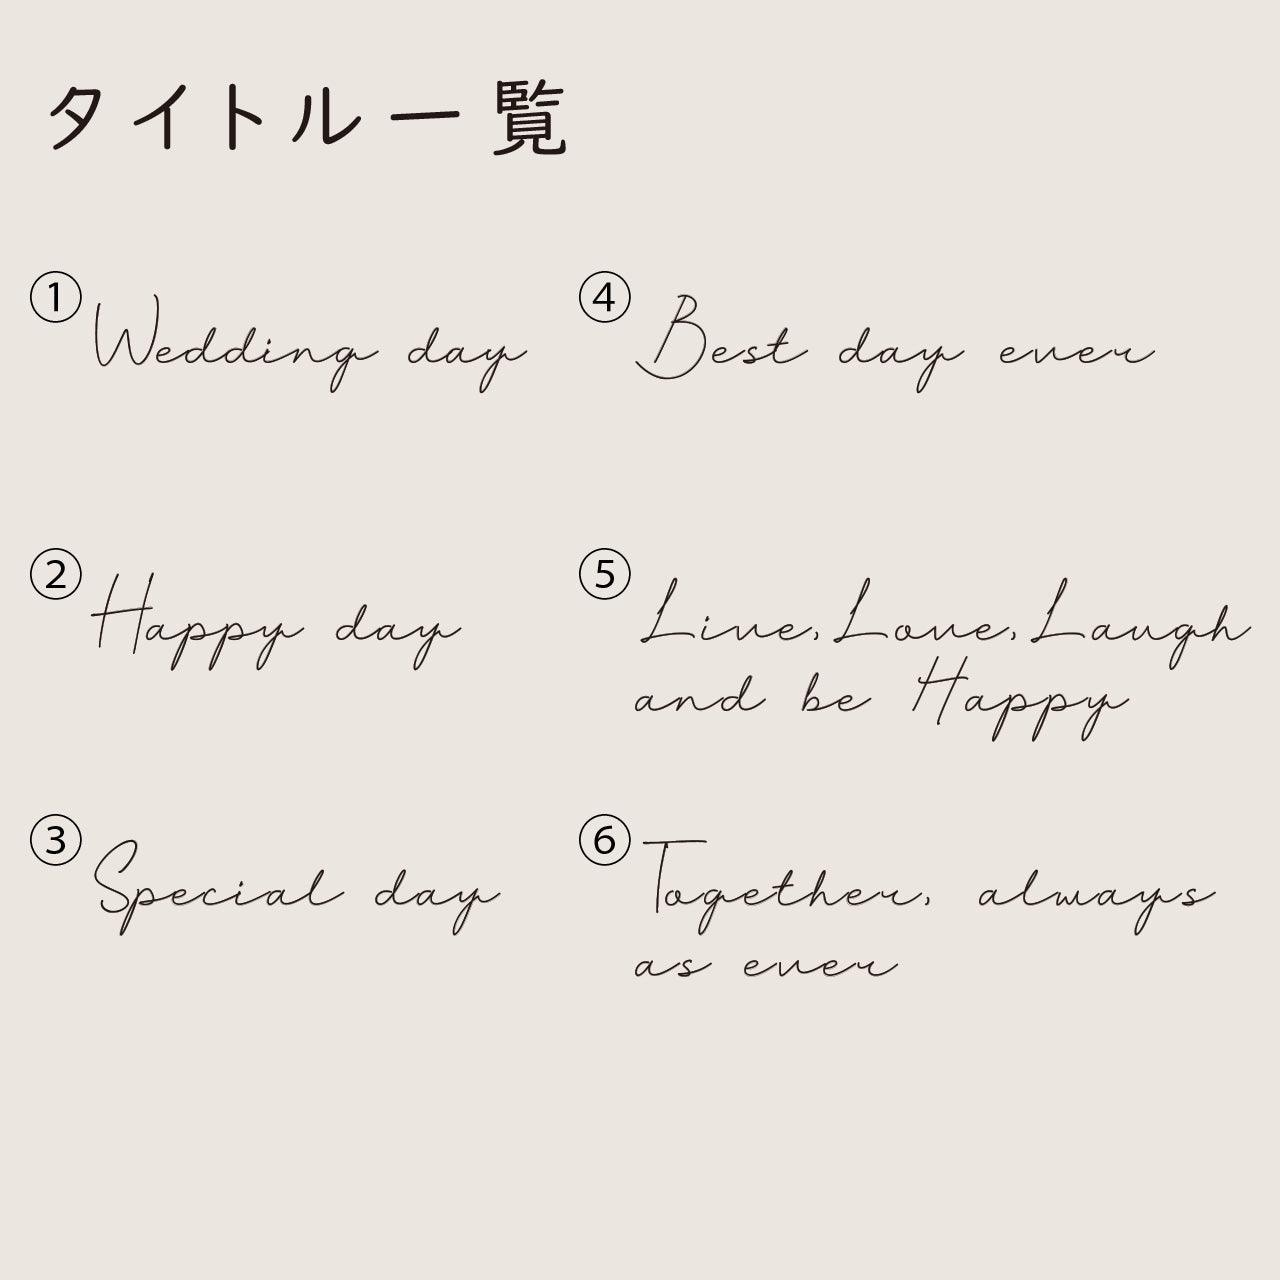 タイトル一覧
① Wedding day
② Happy day
③ Special day
④ Best day ever
⑤ Live, Love, Laugh
and be Happy
⑥ Together, always
as ever